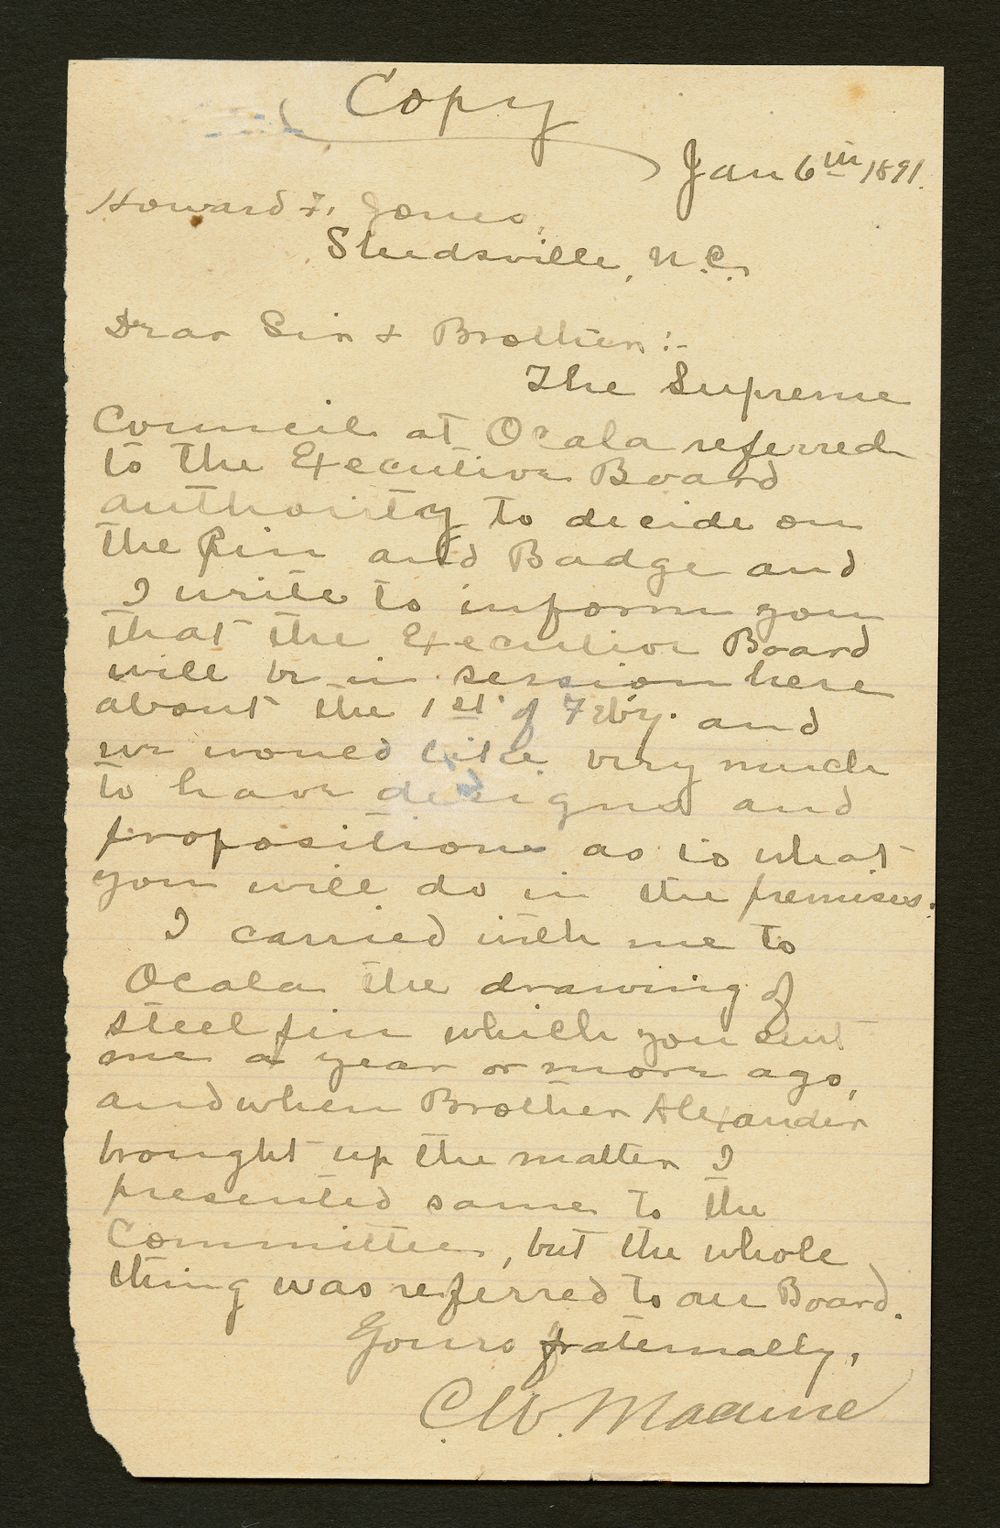 Copy
Jan 6th 1891.
Howard F. Jones,
Steedsville, N.C.
Dear Sir & Brother:-
The Supreme
Council at Ocala referred
to the Executive Board
authority to decide on
the Pin and Badge and
I write to inform you
that the Executive Board
will be in session here
about the 1st of Feby. and
we would like very much
to have designs and
propositions as to what
you will do in the premises.
I carried with me to
Ocala the drawing of
steel pin which you sent
me a year or more ago,
and when Brother Alexander
brought up the matter I
presented same to the
Committee, but the whole
thing was referred to our Board.
Yours fraternally,
C. W. Macune